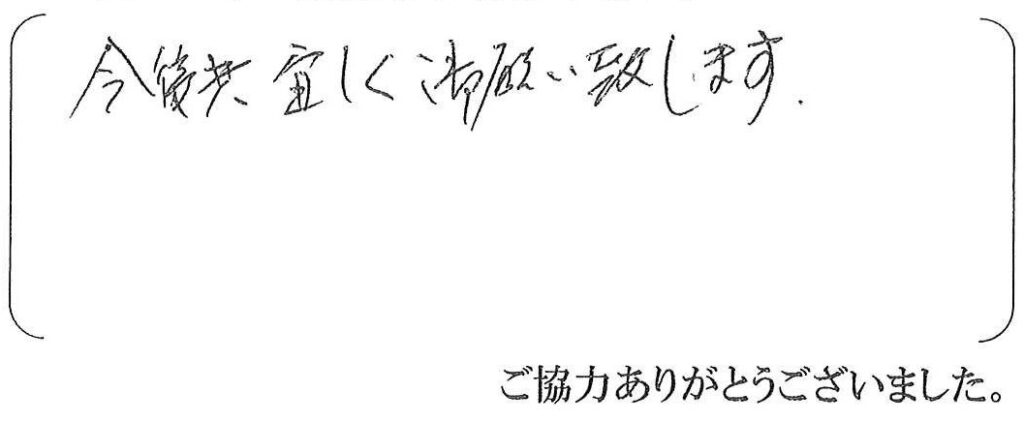 今後共宜しく御願い致します.
ご協力ありがとうございました。